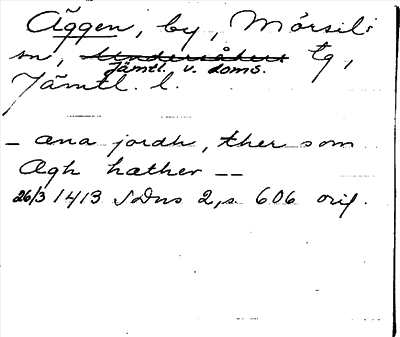 Äggen, by, Mörsils
sn, Undersåkers tg,
Jämtl. v. doms.
Jämtl. l.
— ena jordh, ther som
Ægh hæther ——
26/3 1413 SDns 2, s. 606 orig.